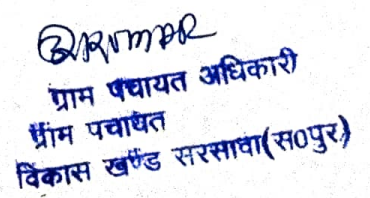 ग्राम पंचायत अधिकारी
ग्राम पचायत
विकास खण्ड सरसावा(स०पुर)